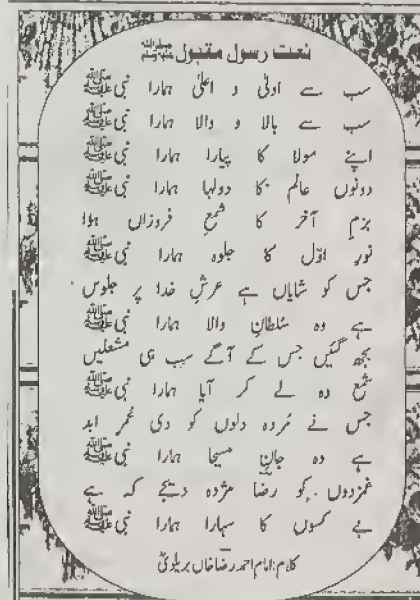 نعت رسول مقبول ﷺ
سب سے اولیٰ و اعلیٰ ہمارا نبی ﷺ
سب سے بالا و والا ہمارا نبی ﷺ
اپنے مولا کا پیارا ہمارا نبی ﷺ
دونوں عالم کا دولہا ہمارا نبی ﷺ
بزم آخر کا شمع فروزاں ہوا
نور اوّل کا جلوہ ہمارا نبی ﷺ
جس کو شایاں ہے عرشِ خدا پر جلوس
ہے وہ سُلطانِ والا ہمارا نبی ﷺ
بجھ گئیں جس کے آگے سب ہی مشعلیں
شمع وہ لے کر آیا ہمارا نبی ﷺ
جس نے مُردہ دلوں کو دی عُمرِ ابد
ہے وہ جانِ مسیحا ہمارا نبی ﷺ
غمزدوں کو رضا مژدہ دیجے کہ ہے
بے کسوں کا سہارا ہمارا نبی ﷺ
کلام: امام احمد رضا خاں بریلویؒ